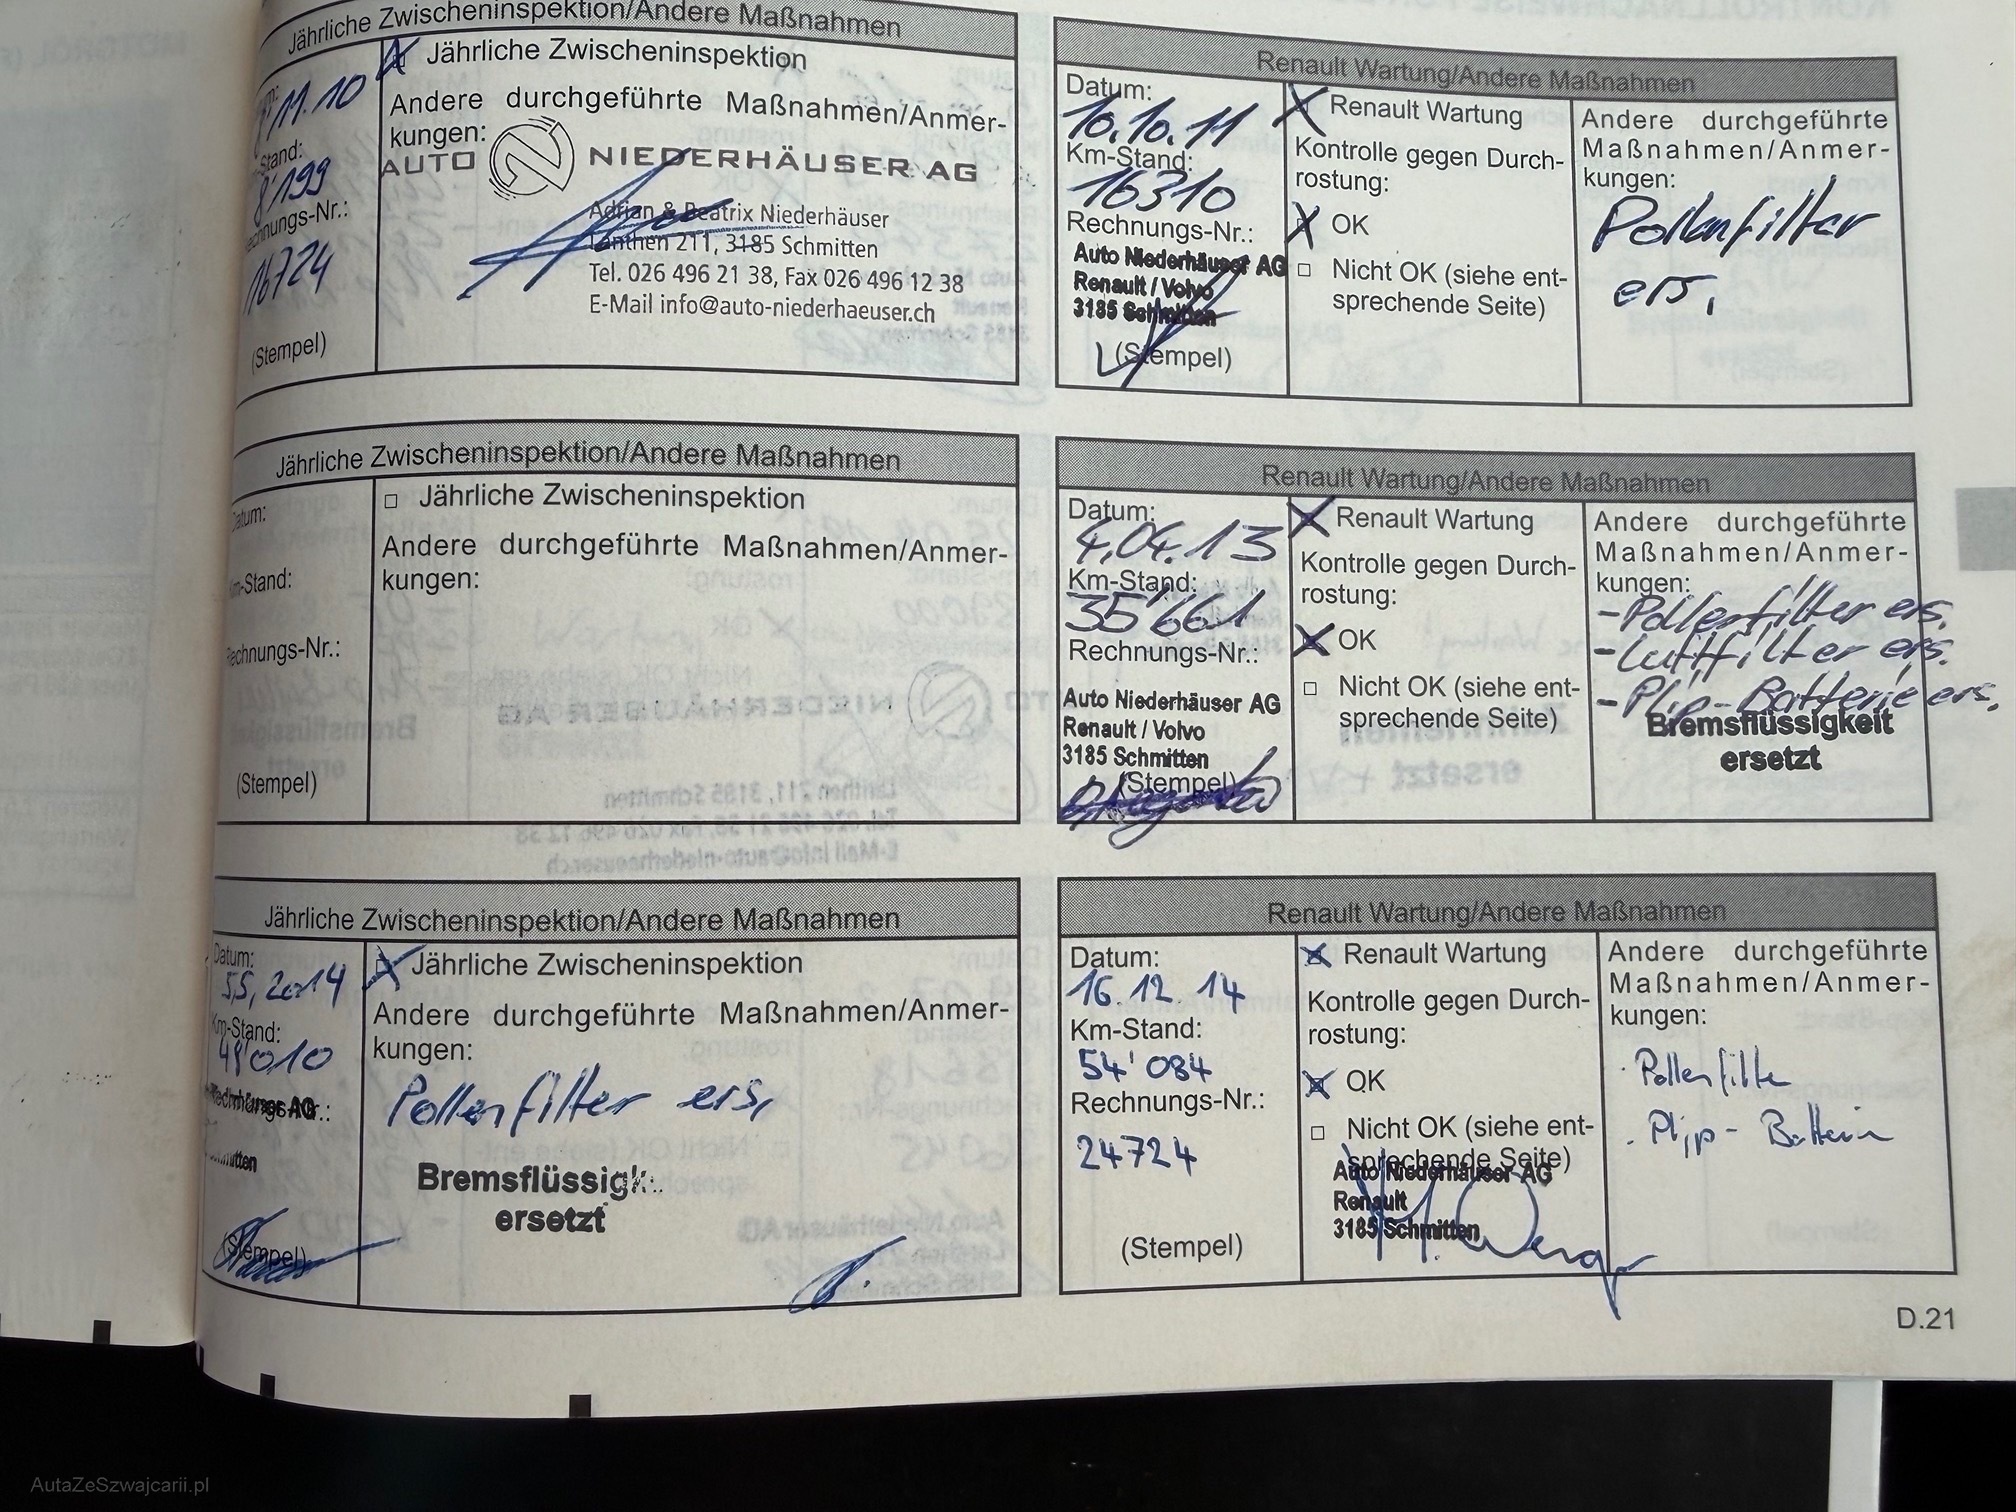 Jährliche Zwischeninspektion/Andere Maßnahmen
11.10
Stand:
8'199
chnungs-Nr.:
16724
(Stempel)
Jährliche Zwischeninspektion
Andere durchgeführte Maßnahmen/Anmer-
kungen:
AUTO NIEDERHÄUSER AG
Adrian & Beatrix Niederhäuser
Lanthen 211, 3185 Schmitten
Tel. 026 496 21 38, Fax 026 496 12 38
E-Mail info@auto-niederhaeuser.ch
Renault Wartung/Andere Maßnahmen
Datum:
10.10.11
Km-Stand:
16310
Rechnungs-Nr.:
Auto Niederhäuser AG
Renault / Volvo
3185 Schmitten
(Stempel)
Renault Wartung
Kontrolle gegen Durch-
rostung:
OK
Nicht OK (siehe ent-
sprechende Seite)
Andere durchgeführte
Maßnahmen/Anmer-
kungen:
Pollenfilter
ers.
Jährliche Zwischeninspektion/Andere Maßnahmen
Datum:
Km-Stand:
Rechnungs-Nr.:
(Stempel)
Jährliche Zwischeninspektion
Andere durchgeführte Maßnahmen/Anmer-
kungen:
Renault Wartung/Andere Maßnahmen
Datum:
4.04.13
Km-Stand:
35'661
Rechnungs-Nr.:
Auto Niederhäuser AG
Renault / Volvo
3185 Schmitten
(Stempel)
Renault Wartung
Kontrolle gegen Durch-
rostung:
OK
Nicht OK (siehe ent-
sprechende Seite)
Andere durchgeführte
Maßnahmen/Anmer-
kungen:
- Pollenfilter ers.
- Luftfilter ers.
- Plip-Batterie ers.
Bremsflüssigkeit
ersetzt
Jährliche Zwischeninspektion/Andere Maßnahmen
Datum:
5.5.2014
Km-Stand:
48'010
(Stempel)
Jährliche Zwischeninspektion
Andere durchgeführte Maßnahmen/Anmer-
kungen:
Pollenfilter ers.
Bremsflüssigk
ersetzt
Renault Wartung/Andere Maßnahmen
Datum:
16.12.14
Km-Stand:
54'084
Rechnungs-Nr.:
24724
(Stempel)
Renault Wartung
Kontrolle gegen Durch-
rostung:
OK
Nicht OK (siehe ent-
sprechende Seite)
Auto Niederhäuser AG
Renault
3185 Schmitten
Andere durchgeführte
Maßnahmen/Anmer-
kungen:
· Pollenfilter
· Plip-Batterie
D.21
AutaZeSzwajcarii.pl